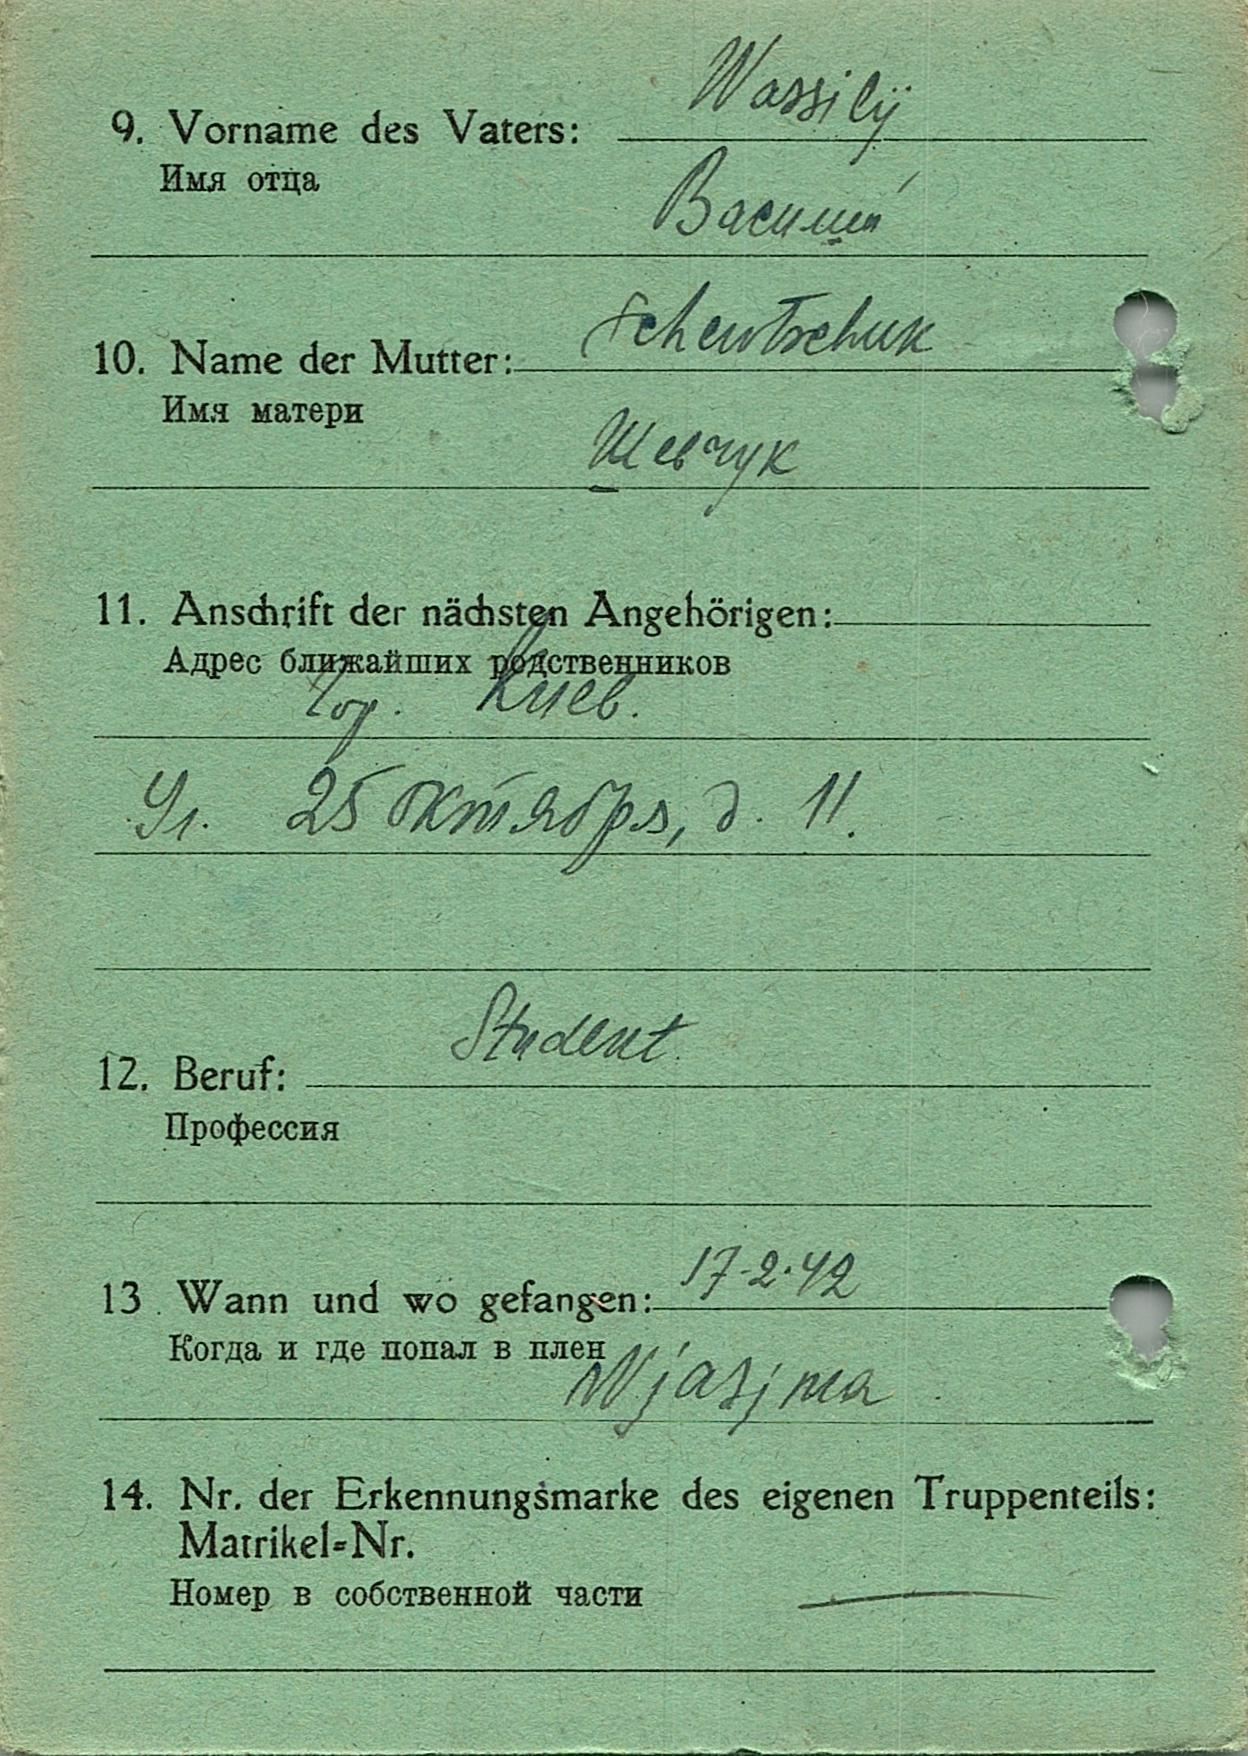 Wassilij
9. Vorname des Vaters:
Имя отца
Василий
Schewtschuk
10. Name der Mutter:
Имя матери
Шевчук
11. Anschrift der nächsten Angehörigen:
Адрес ближайших родственников
Гор. Киев.
Ул. 25 Октября, д. 11.
Student
12. Beruf:
Профессия
13. Wann und wo gefangen: 17-2-42
Когда и где попал в плен
Wjasjma
14. Nr. der Erkennungsmarke des eigenen Truppenteils:
Matrikel=Nr.
Номер в собственной части